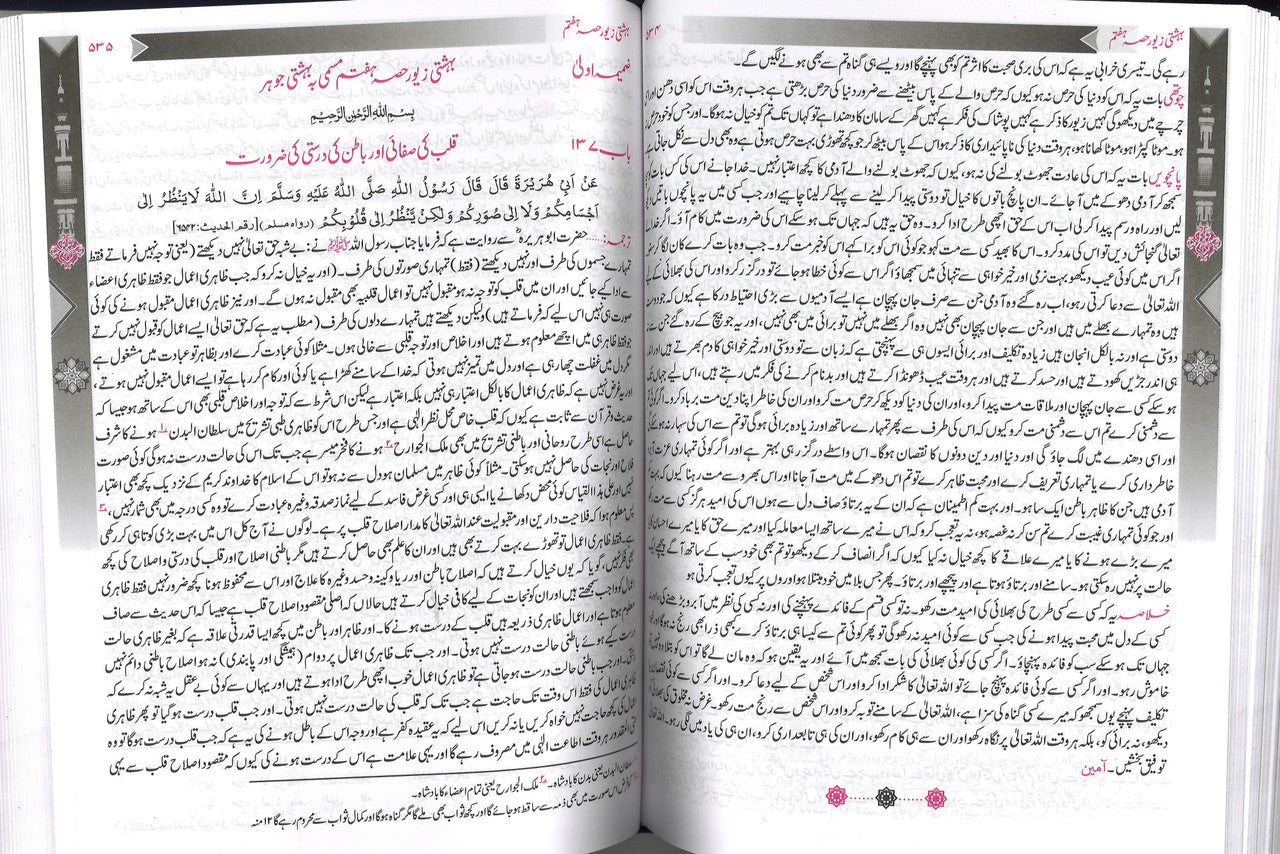 بہشتی زیور حصہ ہفتم
۵۳۴
رہے گی۔ تیسری خرابی یہ ہے کہ اس کی بری صحبت کا اثر تم کو بھی پہنچے گا اور ویسے ہی گناہ تم سے بھی ہونے لگیں گے۔
چوتھی بات یہ کہ اس کو دنیا کی حرص نہ ہو کیوں کہ حرص والے کے پاس بیٹھنے سے ضرور دنیا کی حرص بڑھتی ہے جب ہر وقت اس کو اسی دھن اور
چرچے میں دیکھو گی کہیں زیور کا ذکر ہے کہیں پوشاک کی فکر ہے کہیں گھر کے سامان کا دھندا ہے تو کہاں تک تم کو خیال نہ ہوگا۔ اور جس کو خود حرص
ہو۔ موٹا کپڑا ہو، موٹا کھانا ہو، ہر وقت دنیا کی ناپائیداری کا ذکر ہو اس کے پاس بیٹھ کر جو کچھ تھوڑی بہت حرص ہوتی ہے وہ بھی دل سے نکل جاتی ہے
پانچویں بات یہ کہ اس کی عادت جھوٹ بولنے کی نہ ہو، کیوں کہ جھوٹ بولنے والے آدمی کا کچھ اعتبار نہیں۔ خدا جانے اس کی کس بات کو
سمجھ کر آدمی دھوکے میں آ جائے۔ ان پانچ باتوں کا خیال تو دوستی پیدا کر لینے سے پہلے کر لینا چاہیے اور جب کسی میں یہ پانچوں باتیں
لیں اور راہ و رسم پیدا کر لی اب اس کے حق اچھی طرح ادا کرو۔ وہ حق یہ ہیں کہ جہاں تک ہو سکے اس کی ضرورت میں کام آؤ۔ اگر خدا
تعالیٰ گنجائش دیں تو اس کی مدد کرو۔ اس کا بھید کسی سے مت کہو جو کوئی اس کو برا کہے اس کو خبر مت کرو۔ جب وہ بات کرے کان لگا کر سنو
اگر اس میں کوئی عیب دیکھو بہت نرمی اور خیر خواہی سے تنہائی میں سمجھاؤ اگر اس سے کوئی خطا ہو جائے تو درگزر کرو اور اس کی بھلائی کے لیے
اللہ تعالیٰ سے دعا کرتی رہو، اب رہ گئے وہ آدمی جن سے صرف جان پہچان ہے ایسے آدمیوں سے بڑی احتیاط درکار ہے کیوں کہ جو دوست
ہیں وہ تمہارے بھلے میں ہیں اور جن سے جان پہچان بھی نہیں وہ اگر بھلے میں نہیں تو برائی میں بھی نہیں، اور یہ جو بیچ کے رہ گئے جن سے
دوستی ہے اور نہ بالکل انجان ہیں زیادہ تکلیف اور برائی ایسوں ہی سے پہنچتی ہے کہ زبان سے تو دوستی اور خیر خواہی کا دم بھرتے ہیں اور اندر
ہی اندر جڑیں کھودتے ہیں اور حسد کرتے ہیں اور ہر وقت عیب ڈھونڈا کرتے ہیں اور بدنام کرنے کی فکر میں رہتے ہیں، اس لیے جہاں تک
ہو سکے کسی سے جان پہچان اور ملاقات مت پیدا کرو، اور ان کی دنیا کو دیکھ کر حرص مت کرو اور ان کی خاطر اپنا دین مت برباد کرو۔ اگر کوئی تم
سے دشمنی کرے تم اس سے دشمنی مت کرو کیوں کہ اس کی طرف سے پھر تمہارے ساتھ اور زیادہ برائی ہوگی تو تم سے اس کی سہار نہ ہوگی
اور اسی دھندے میں لگ جاؤ گی اور دنیا اور دین دونوں کا نقصان ہوگا۔ اس واسطے درگزر ہی بہتر ہے اور اگر کوئی تمہاری عزت آبرو
خاطر داری کرے یا تمہاری تعریف کرے اور محبت ظاہر کرے تو تم اس دھوکے میں مت آ جانا اور اس بھروسے مت رہنا کیوں کہ بہت
آدمی ہیں جن کا ظاہر باطن ایک سا ہو۔ اور بہت کم اطمینان ہے کہ ان کے یہ برتاؤ صاف دل سے ہوں اس کی امید ہرگز کسی سے مت
اور جو کوئی تمہاری غیبت کرے تم سن کر نہ غصہ ہو، نہ یہ تعجب کرو کہ اس نے میرے ساتھ ایسا معاملہ کیا اور میرے حق کا یا میرے احسان
میرے بڑے ہونے کا یا میرے علاقے کا کچھ خیال نہ کیا کیوں کہ اگر انصاف کر کے دیکھو تو تم بھی خود سب کے ساتھ آگے پیچھے ایک
حالت پر نہیں رہ سکتی ہو۔ سامنے اور برتاؤ ہوتا ہے اور پیچھے اور برتاؤ۔ پھر جس بلا میں خود مبتلا ہو اوروں پر کیوں تعجب کرتی ہو
خلاصہ یہ کہ کسی سے کسی طرح کی بھلائی کی امید مت رکھو۔ نہ تو کسی قسم کے فائدے پہنچنے کی اور نہ کسی کی نظر میں آبرو بڑھنے کی، اور نہ
کسی کے دل میں محبت پیدا ہونے کی جب کسی سے کوئی امید نہ رکھو گی تو پھر کوئی تم سے کیسا ہی برتاؤ کرے بھی ذرا بھی رنج نہ ہوگا اور خود
جہاں تک ہو سکے سب کو فائدہ پہنچاؤ۔ اگر کسی کی کوئی بھلائی کی بات سمجھ میں آئے اور یہ یقین ہو کہ وہ مان لے گا تو اس کو بتلا دو نہیں
خاموش رہو۔ اور اگر کسی سے کوئی فائدہ پہنچ جائے تو اللہ تعالیٰ کا شکر ادا کرو اور اس شخص کے لیے دعا کرو۔ اور اگر کسی سے کوئی نقصان
تکلیف پہنچے یوں سمجھو کہ میرے کسی گناہ کی سزا ہے، اللہ تعالیٰ کے سامنے توبہ کرو اور اس شخص سے رنج مت رکھو۔ غرض نہ مخلوق کی بھلائی کو
دیکھو، نہ برائی کو، بلکہ ہر وقت اللہ تعالیٰ پر نگاہ رکھو اور ان سے ہی کام رکھو، اور ان کی ہی تابعداری کرو، ان ہی کی یاد میں لگی رہو۔ اللہ تعالیٰ
توفیق بخشیں۔ آمین
بہشتی زیور حصہ ہفتم
۵۳۵
ضمیمہ اولیٰ
بہشتی زیور حصہ ہفتم مسمی بہ بہشتی جوہر
بِسْمِ اللهِ الرَّحْمٰنِ الرَّحِيْمِ
باب ۱۳۷
قلب کی صفائی اور باطن کی درستی کی ضرورت
عَنْ اَبِيْ هُرَيْرَةَ قَالَ قَالَ رَسُوْلُ اللهِ صَلَّى اللهُ عَلَيْهِ وَسَلَّمَ اِنَّ اللهَ لَا يَنْظُرُ اِلٰى
اَجْسَامِكُمْ وَلَا اِلٰى صُوَرِكُمْ وَلٰكِنْ يَّنْظُرُ اِلٰى قُلُوْبِكُمْ (رواه مسلم) [رقم الحديث: ۶۵۴۲]
ترجمہ:..... حضرت ابو ہریرہؓ سے روایت ہے کہ فرمایا جناب رسول اللہ ﷺ نے: بے شبہ حق تعالیٰ نہیں دیکھتے (یعنی توجہ نہیں فرماتے فقط)
تمہارے جسموں کی طرف اور نہیں دیکھتے (فقط) تمہاری صورتوں کی طرف۔ (اور یہ خیال نہ کرو کہ جب ظاہری اعمال جو فقط ظاہری اعضاء
سے ادا کیے جائیں اور ان میں قلب کو توجہ نہ ہو مقبول نہیں تو اعمال قلبیہ بھی مقبول نہ ہوں گے۔ اور نیز ظاہری اعمال مقبول ہونے کی کوئی
صورت ہی نہیں اس لیے کہ فرماتے ہیں) ولیکن دیکھتے ہیں تمہارے دلوں کی طرف (مطلب یہ ہے کہ حق تعالیٰ ایسے اعمال کو قبول نہیں کرتے
جو فقط ظاہر ہی میں اچھے معلوم ہوتے ہیں اور اخلاص اور توجہ قلبی سے خالی ہوں۔ مثلاً کوئی عبادت کرے اور بظاہر تو عبادت میں مشغول ہے
مگر دل میں غفلت چھا رہی ہے اور دل میں تمیز نہیں ہوتی کہ خدا کے سامنے کھڑا ہے یا کوئی اور کام کر رہا ہے تو ایسے اعمال مقبول نہیں ہوتے،
اور یہ غرض نہیں ہے کہ ظاہری اعمال کا بالکل اعتبار ہی نہیں، بلکہ اعتبار ہے لیکن اس شرط سے کہ توجہ اور اخلاص قلبی بھی اس کے ساتھ ہو جیسا کہ
حدیث و قرآن سے ثابت ہے کیوں کہ قلب خاص محل نظر الٰہی ہے اور جس طرح اس کو ظاہری طبی تشریح میں سلطان البدن۱ ہونے کا شرف
حاصل ہے اسی طرح روحانی اور باطنی تشریح میں بھی ملک الجوارح۲ ہونے کا فخر میسر ہے جب تک اس کی حالت درست نہ ہوگی کوئی صورت
فلاح اور نجات کی حاصل نہیں ہو سکتی۔ مثلاً کوئی ظاہر میں مسلمان ہو دل سے نہ ہو تو اس کے اسلام کا خداوند کریم کے نزدیک کچھ بھی اعتبار
نہیں اور علیٰ ہذا القیاس کوئی محض دکھانے یا ایسی ہی اور کسی غرض فاسد کے لیے نماز صدقہ وغیرہ عبادت کرے تو وہ کسی درجہ میں بھی شمار نہیں،۳
پس معلوم ہوا کہ فلاحیت دارین اور مقبولیت عند اللہ تعالیٰ کا مدار اصلاح قلب پر ہے۔ لوگوں نے آج کل اس میں بہت بڑی کوتاہی کر رکھی
ہے۔ فقط ظاہری اعمال تو تھوڑے بہت کرتے بھی ہیں اور ان کا علم بھی حاصل کرتے ہیں مگر باطنی اصلاح اور قلب کی درستی و اصلاح کی کچھ
بھی فکر نہیں، گویا کہ یوں خیال کرتے ہیں کہ اصلاح باطن اور ریا و کینہ و حسد وغیرہ کا علاج اور اس سے محفوظ ہونا کچھ ضرور نہیں فقط ظاہری
اعمال کو واجب سمجھتے ہیں اور ان کو نجات کے لیے کافی خیال کرتے ہیں حالاں کہ اصلی مقصود اصلاح قلب ہے جیسا کہ اس حدیث سے صاف
معلوم ہوتا ہے اور اعمال ظاہری ذریعہ ہیں قلب کے درست ہونے کا۔ اور ظاہر اور باطن میں کچھ ایسا قدرتی علاقہ ہے کہ بغیر ظاہری حالت
درست کیے ہوئے باطنی حالت درست نہیں ہوتی۔ اور جب تک ظاہری اعمال پر دوام (ہمیشگی اور پابندی) نہ ہو اصلاح باطنی دائم نہیں
رہتی۔ اور جب باطنی حالت درست ہو جاتی ہے تو ظاہری اعمال خوب اچھی طرح ادا ہوتے ہیں اور یہاں سے کوئی بے عقل یہ شبہ نہ کرے کہ
ظاہری اعمال کی فقط اس وقت تک حاجت ہے جب تک کہ قلب کی حالت درست نہیں ہوتی۔ اور جب قلب درست ہو گیا تو پھر ظاہری
اعمال کی کچھ حاجت نہیں خواہ کریں یا نہ کریں اس لیے کہ یہ عقیدہ کفر ہے اور وجہ اس کے باطل ہونے کی یہ ہے کہ جب قلب درست ہوگا تو وہ
حتی المقدور ہر وقت اطاعت الٰہی میں مصروف رہے گا اور یہی علامت ہے اس کے درست ہونے کی کیوں کہ مقصود اصلاح قلب سے یہی
سلطان البدن یعنی بدن کا بادشاہ۔ ۲ ملک الجوارح یعنی تمام اعضاء کا بادشاہ۔
اس صورت میں بھی ذمہ سے ساقط ہو جائے گا اور کچھ ثواب بھی ملے گا مگر گناہ ہوگا اور کمال ثواب سے محروم رہے گا ۱۲ منہ